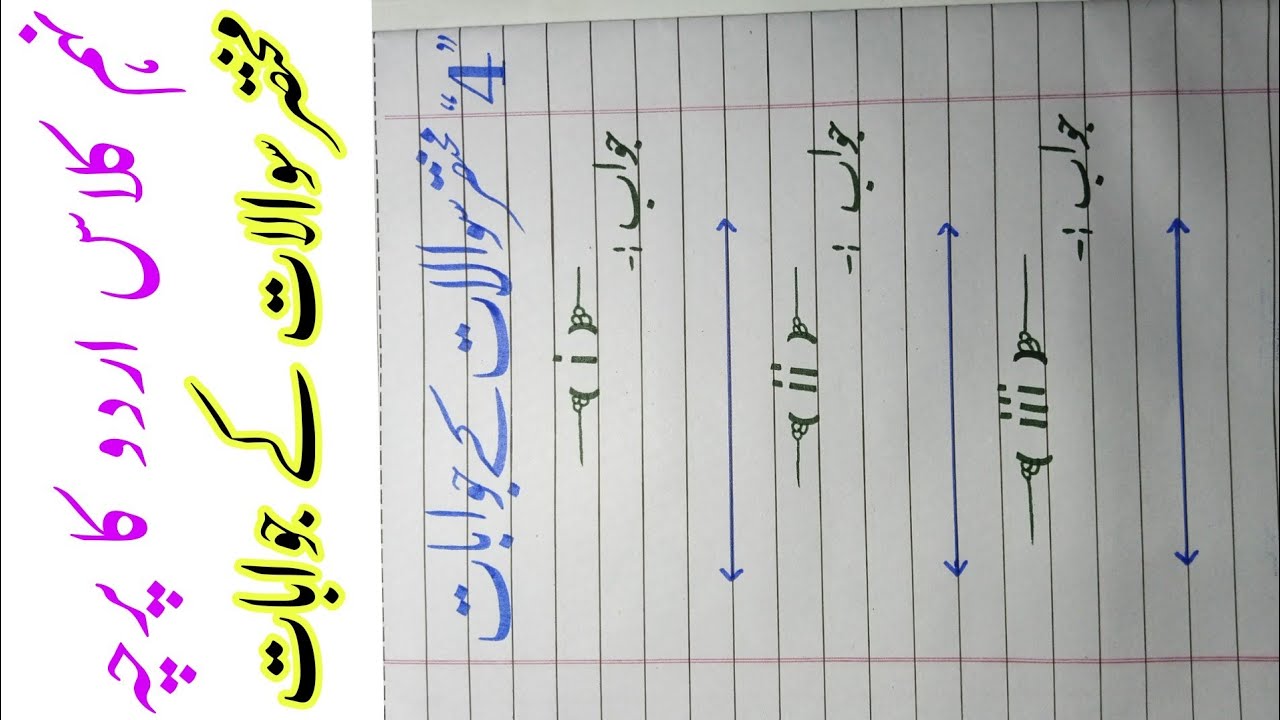 نہم کلاس اردو کا پرچہ
مختصر سوالات کے جوابات
"4" مختصر سوالات کے جوابات
(i)
جواب :-
(ii)
جواب :-
(iii)
جواب :-